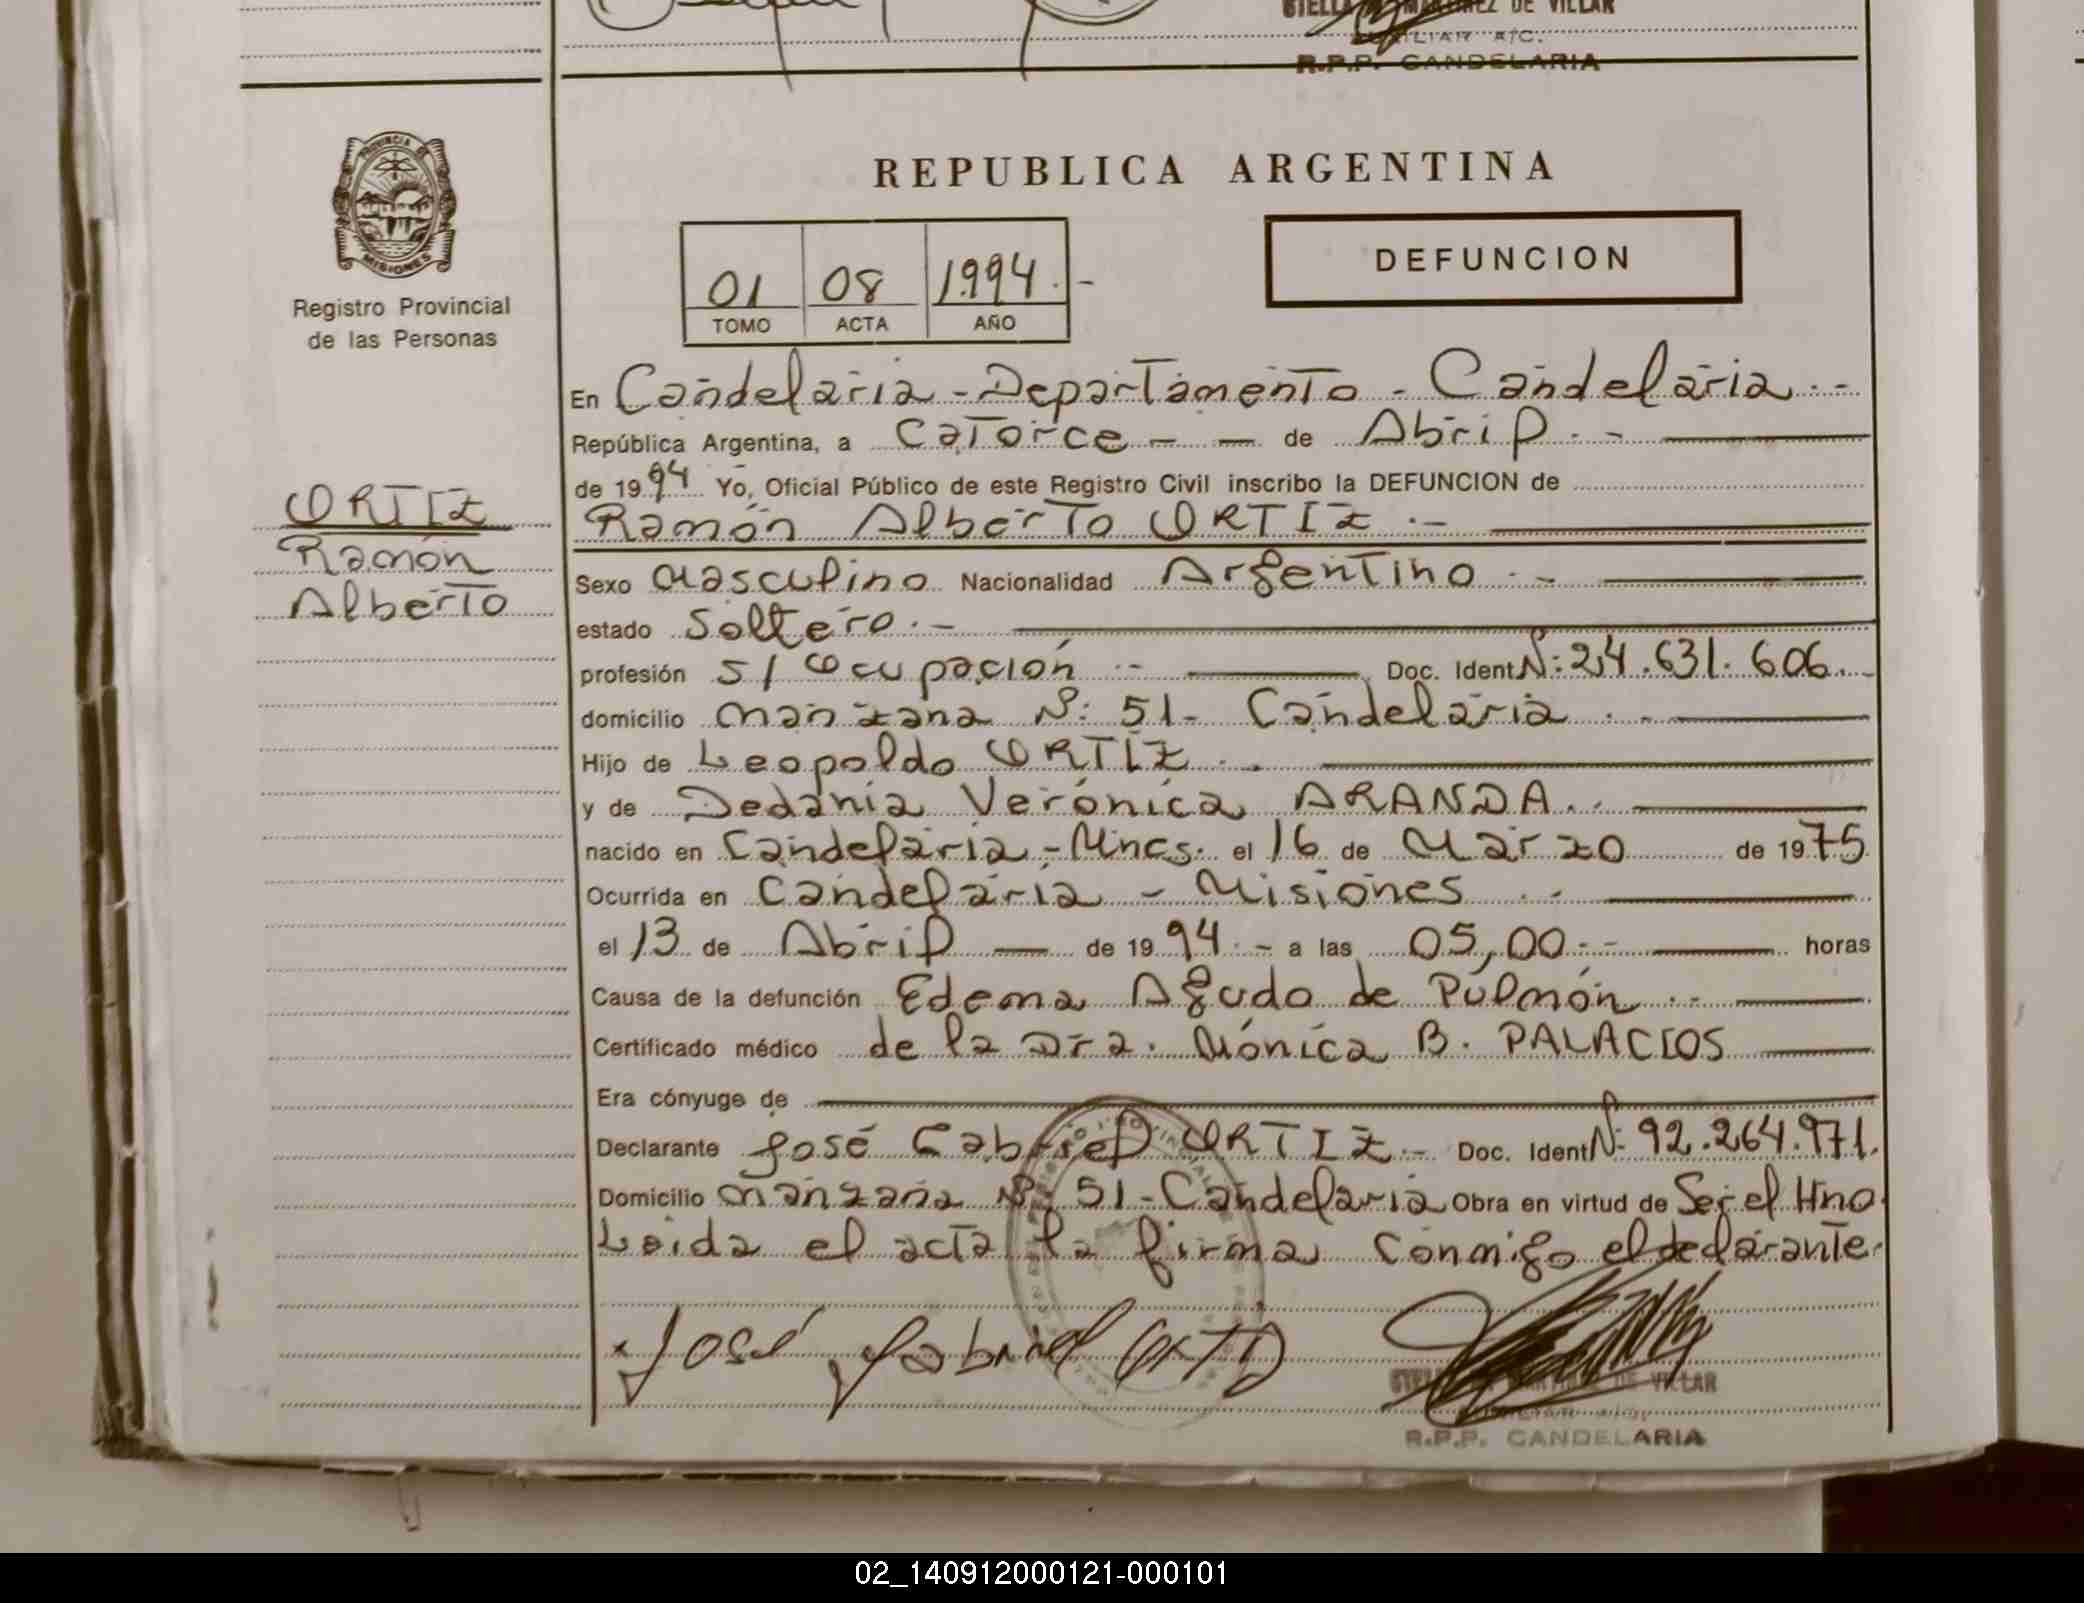 STELLA M. MARTINEZ DE VILLAR
AUXILIAR A/C.
R.P.P. CANDELARIA
PROVINCIA DE
MISIONES
Registro Provincial
de las Personas
REPUBLICA ARGENTINA
01 08 1994.-
TOMO ACTA AÑO
DEFUNCION
En Candelaria - Departamento - Candelaria.-
República Argentina, a Catorce - - de Abril.-
de 1994 Yo, Oficial Público de este Registro Civil inscribo la DEFUNCION de
ORTIZ
Ramón
Alberto
Ramón Alberto ORTIZ.-
Sexo Masculino Nacionalidad Argentino.-
estado Soltero.-
profesión S/Ocupación.- Doc. Ident Nº: 24.631.606.-
domicilio Manzana Nº: 51- Candelaria.-
Hijo de Leopoldo ORTIZ.-
y de Dedania Verónica ARANDA.-
nacido en Candelaria - Mnes. el 16 de Marzo de 1975
Ocurrida en Candelaria - Misiones.-
el 13 de Abril — de 1994.- a las 05,00.- horas
Causa de la defunción Edema Agudo de Pulmón.-
Certificado médico de la Dra. Mónica B. PALACIOS
Era cónyuge de
Declarante José Gabriel ORTIZ.- Doc. Ident Nº: 92.264.971.
Domicilio Manzana Nº: 51 - Candelaria Obra en virtud de Ser el Hno.
Leida el acta la firma conmigo el declarante.
José Gabriel Ortiz
STELLA M. MARTINEZ DE VILLAR
AUXILIAR A/C.
R.P.P. CANDELARIA
02_140912000121-000101